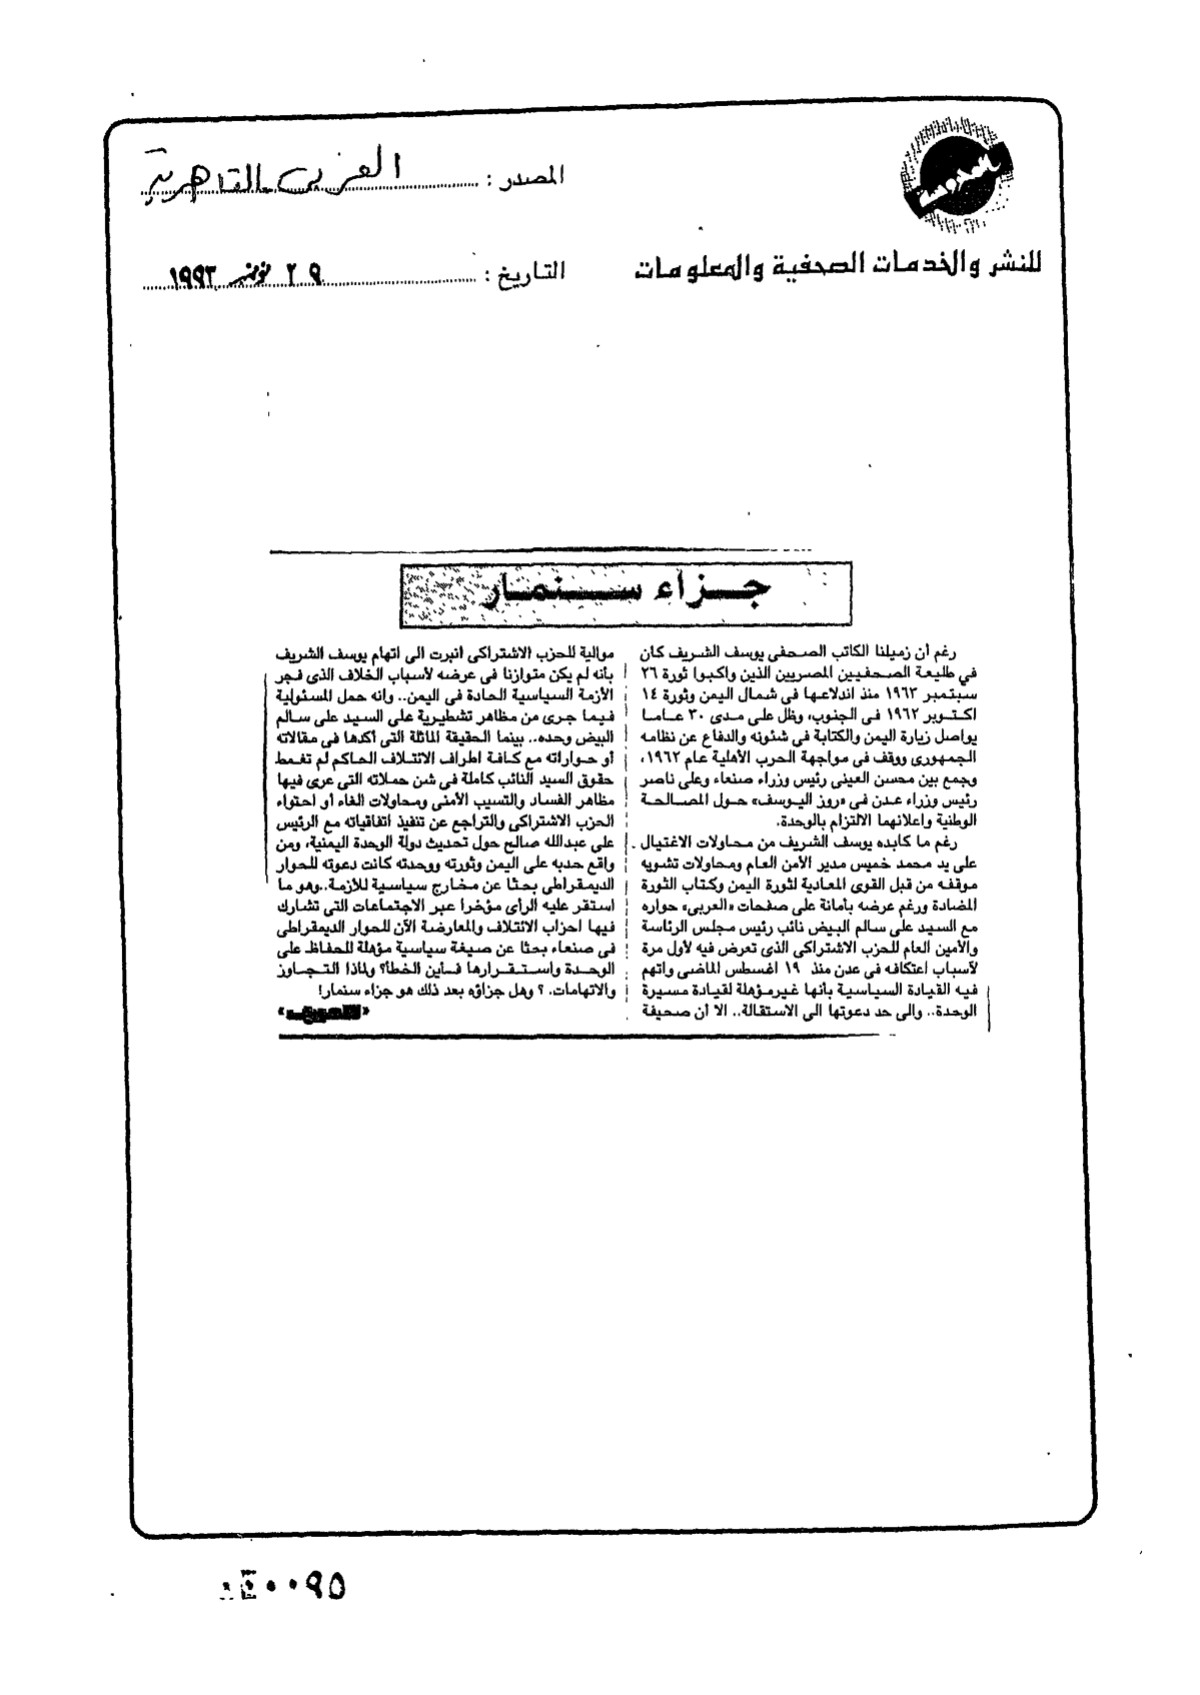 المصدر : العربي القاهرية
للنشر والخدمات الصحفية والمعلومات
التاريخ : ٢٩ نوفمبر ١٩٩٣
جزاء سنمار
رغم أن زميلنا الكاتب الصحفى يوسف الشريف كان
في طليعة الصحفيين المصريين الذين واكبوا ثورة ٢٦
سبتمبر ١٩٦٣ منذ اندلاعها فى شمال اليمن وثورة ١٤
اكتوبر ١٩٦٢ فى الجنوب، وظل على مدى ٣٠ عاما
يواصل زيارة اليمن والكتابة في شئونه والدفاع عن نظامه
الجمهورى ووقف فى مواجهة الحرب الأهلية عام ١٩٦٢،
وجمع بين محسن العينى رئيس وزراء صنعاء وعلى ناصر
رئيس وزراء عدن فى «روز اليوسف» حول المصالحة
الوطنية واعلانهما الالتزام بالوحدة.
رغم ما كابده يوسف الشريف من محاولات الاغتيال
على يد محمد خميس مدير الأمن العام ومحاولات تشويه
موقفه من قبل القوى المعادية لثورة اليمن وكتاب الثورة
المضادة ورغم عرضه بأمانة على صفحات «العربى» حواره
مع السيد على سالم البيض نائب رئيس مجلس الرئاسة
والأمين العام للحزب الاشتراكى الذى تعرض فيه لأول مرة
لأسباب اعتكافه فى عدن منذ ١٩ اغسطس الماضى واتهم
فيه القيادة السياسية بأنها غير مؤهلة لقيادة مسيرة
الوحدة.. والى حد دعوتها الى الاستقالة.. الا أن صحيفة
موالية للحزب الاشتراكى انبرت الى اتهام يوسف الشريف
بأنه لم يكن متوازنا فى عرضه لأسباب الخلاف الذى فجر
الأزمة السياسية الحادة فى اليمن.. وانه حمل المسئولية
فيما جرى من مظاهر تشطيرية على السيد على سالم
البيض وحده.. بينما الحقيقة الماثلة التى أكدها فى مقالاته
أو حواراته مع كافة اطراف الائتلاف الحاكم لم تغمط
حقوق السيد النائب كاملة فى شن حملاته التى عرى فيها
مظاهر الفساد والتسيب الأمنى ومحاولات الغاء أو احتواء
الحزب الاشتراكى والتراجع عن تنفيذ اتفاقياته مع الرئيس
على عبدالله صالح حول تحديث دولة الوحدة اليمنية، ومن
واقع حدبه على اليمن وثورته ووحدته كانت دعوته للحوار
الديمقراطى بحثا عن مخارج سياسية للأزمة..وهو ما
استقر عليه الرأى مؤخرا عبر الاجتماعات التى تشارك
فيها احزاب الائتلاف والمعارضة الآن للحوار الديمقراطى
فى صنعاء بحثا عن صيغة سياسية مؤهلة للحفاظ على
الوحدة واستقرارها فأين الخطأ؟ ولماذا التجاوز
والاتهامات.؟ وهل جزاؤه بعد ذلك هو جزاء سنمار!